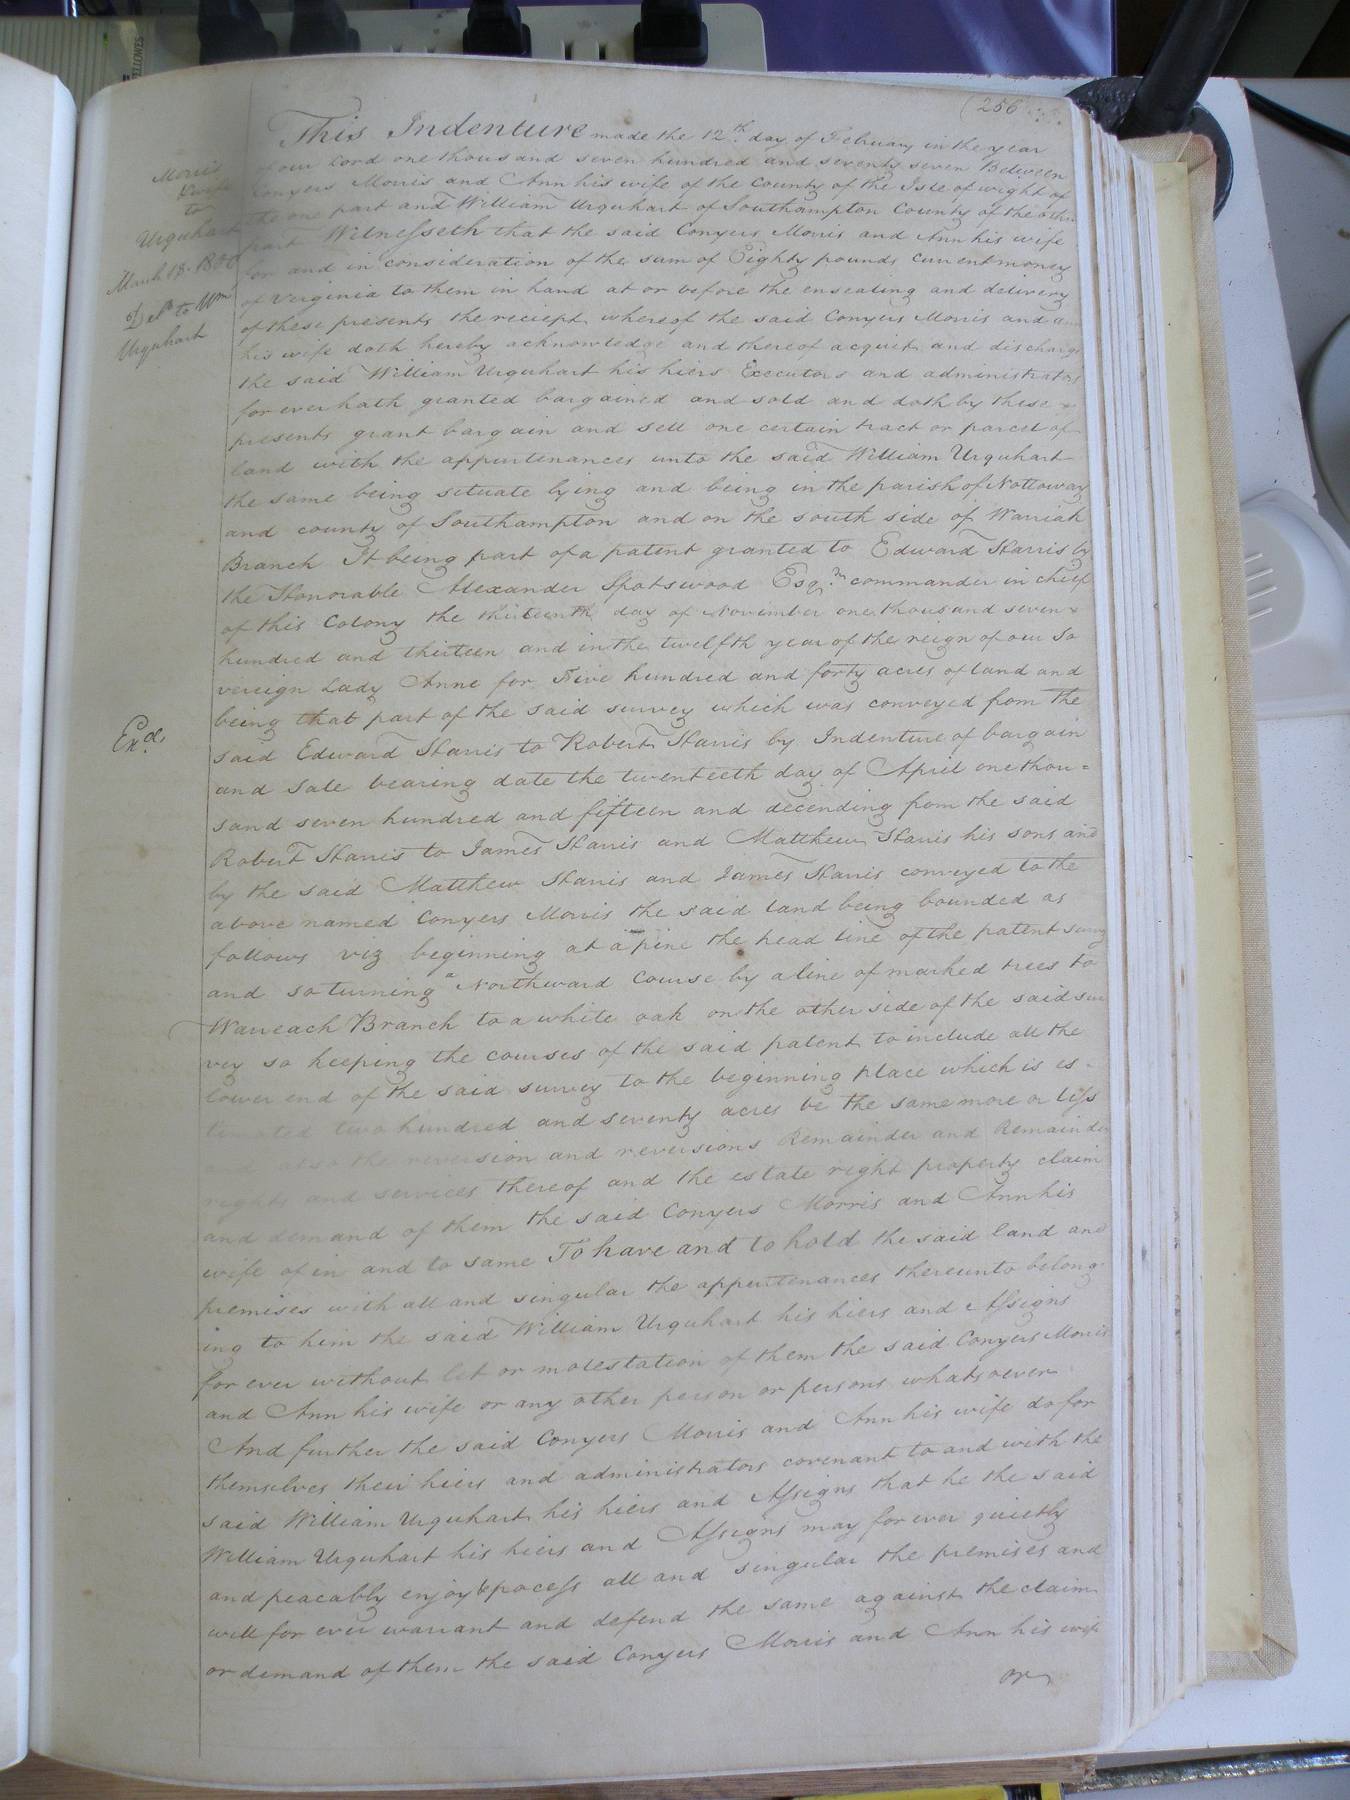 (256
Morris
& wife
to
Urquhart
March 18. 1800
Deld to Wm
Urquhart
Exd.
This Indenture made the 12th day of February in the year
of our Lord one thousand seven hundred and seventy seven Between
Conyers Morris and Ann his wife of the County of the Isle of wight of
the one part and William Urquhart of Southampton County of the other
part Witnesseth that the said Conyers Morris and Ann his wife
for and in consideration of the sum of Eighty pounds current money
of Virginia to them in hand at or before the ensealing and delivery
of these presents the reciept whereof the said Conyers Morris and Ann
his wife doth hereby acknowledge and thereof acquet and discharge
the said William Urquhart his hiers Executors and administrators
for ever hath granted bargained and sold and doth by these
presents grant bargain and sell one certain tract or parcel of
land with the appurtenances unto the said William Urquhart
the same being situate lying and being in the parish of Nottoway
and county of Southampton and on the south side of Warriak
Branch It being part of a patent granted to Edward Harris by
the Honorable Alexander Spotswood Esqr. commander in chief
of this Colony the thirteenth day of November one thousand seven
hundred and thirteen and in the twelfth year of the reign of our So
vereign Lady Anne for Five hundred and forty acres of land and
being that part of the said survey which was conveyed from the
said Edward Harris to Robert Harris by Indenture of bargain
and Sale bearing date the twenteeth day of April one thou=
sand seven hundred and fifteen and decending from the said
Robert Harris to James Harris and Matthew Harris his sons and
by the said Matthew Harris and James Harris conveyed to the
above named Conyers Morris the said land being bounded as
follows viz beginning at a pine the head line of the patent survey
and so turning a Northward Course by a line of marked trees to
Warreach Branch to a white oak on the other side of the said sur
vey so keeping the courses of the said patent to include all the
lower end of the said survey to the beginning place which is es-
timated two hundred and seventy acres be the same more or less
and also the reversion and reversions Remainder and Remainders
rights and services thereof and the estate right property claim
and demand of them the said Conyers Morris and Ann his
wife of in and to same To have and to hold the said land and
premises with all and singular the appurtenances thereunto belong
ing to him the said William Urquhart his hiers and Assigns
for ever without let or molestation of them the said Conyers Morris
and Ann his wife or any other person or persons whatsoever
And further the said Conyers Morris and Ann his wife do for
themselves their hiers and administrators covenant to and with the
said William Urquhart his hiers and Assigns that he the said
William Urquhart his hiers and Assigns may for ever quietly
and peacably enjoy & pocess all and singular the premises and
will for ever warrant and defend the same against the claim
or demand of them the said Conyers Morris and Ann his wife
or